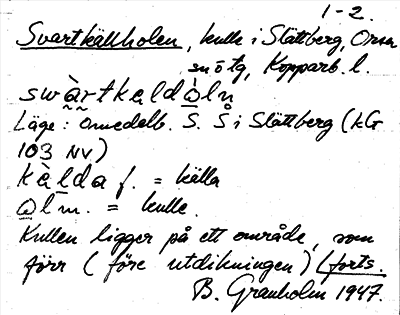 1-2.
Svartkällholen, kulle i Slättberg, Orsa
sn ö tg, Kopparb. l.
swàrtkeldo̲ln
Läge: Omedelb. S. S i Slättberg (kG
103 NV)
kèlda f. = källa
o̲l m. = kulle.
Kullen ligger på ett område, som
förr (före utdikningen) (forts.
B. Granholm 1947.